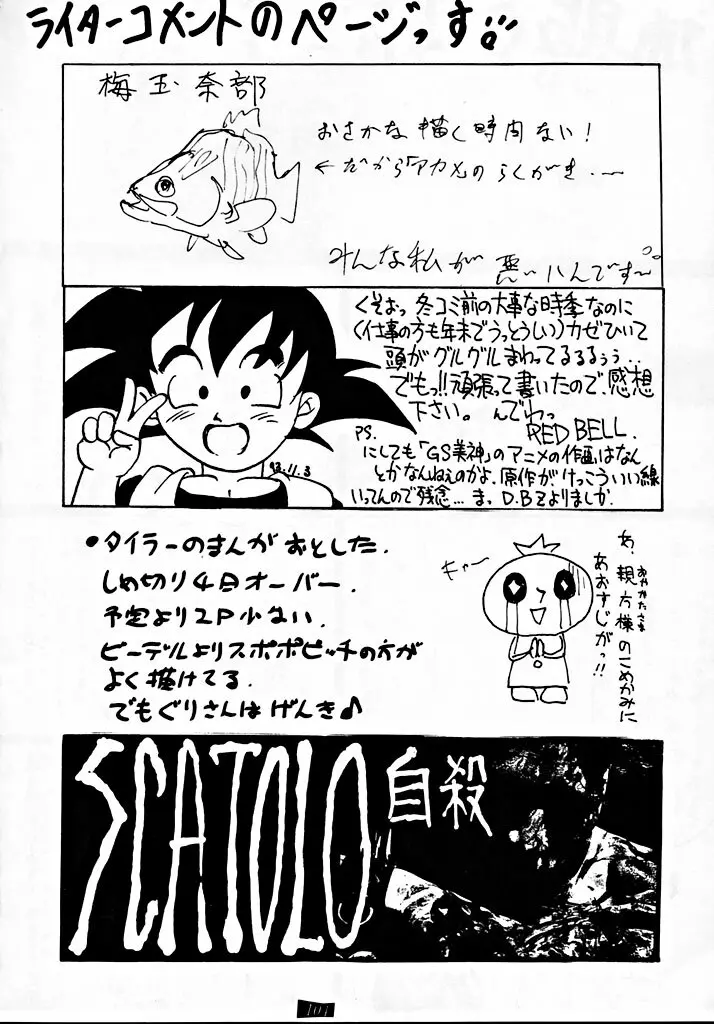 ライターコメントのページっす!!
梅玉奈部
おさかな描く時間ない!
←だから「アカメ」のらくがき…〜
みんな私が悪いんです〜。
くそぉっ冬コミ前の大事な時季なのに
(仕事の方も年末でうっとうしい)カゼひいて
頭がグルグルまわってるるるぅぅ..
でもっ!!頑張って書いたので、感想
下さい。んでわっ
RED BELL.
PS.
にしても「GS美神」のアニメの作画はなん
とかなんねぇのかよ、原作がけっこういい線
いってんので残念…ま、D.B.Zよりましか.
93.11.3
•タイラーのまんがおとした.
しめ切り4日オーバー.
予定より2P少ない.
ビーデルよりスポポビッチの方が
よく描けてる.
でもぐりさんはげんき♪
キャー
あ、親方様のこめかみに
おやかたさま
あおすじがっ!!
SCATOLO
自殺
101